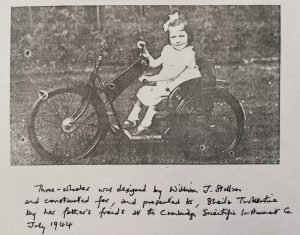 Three-wheeler was designed by William J. Stallan
and constructed for, and presented to, Sheila Turkentine
by her father's friends at the Cambridge Scientific Instrument Co.
July 1944